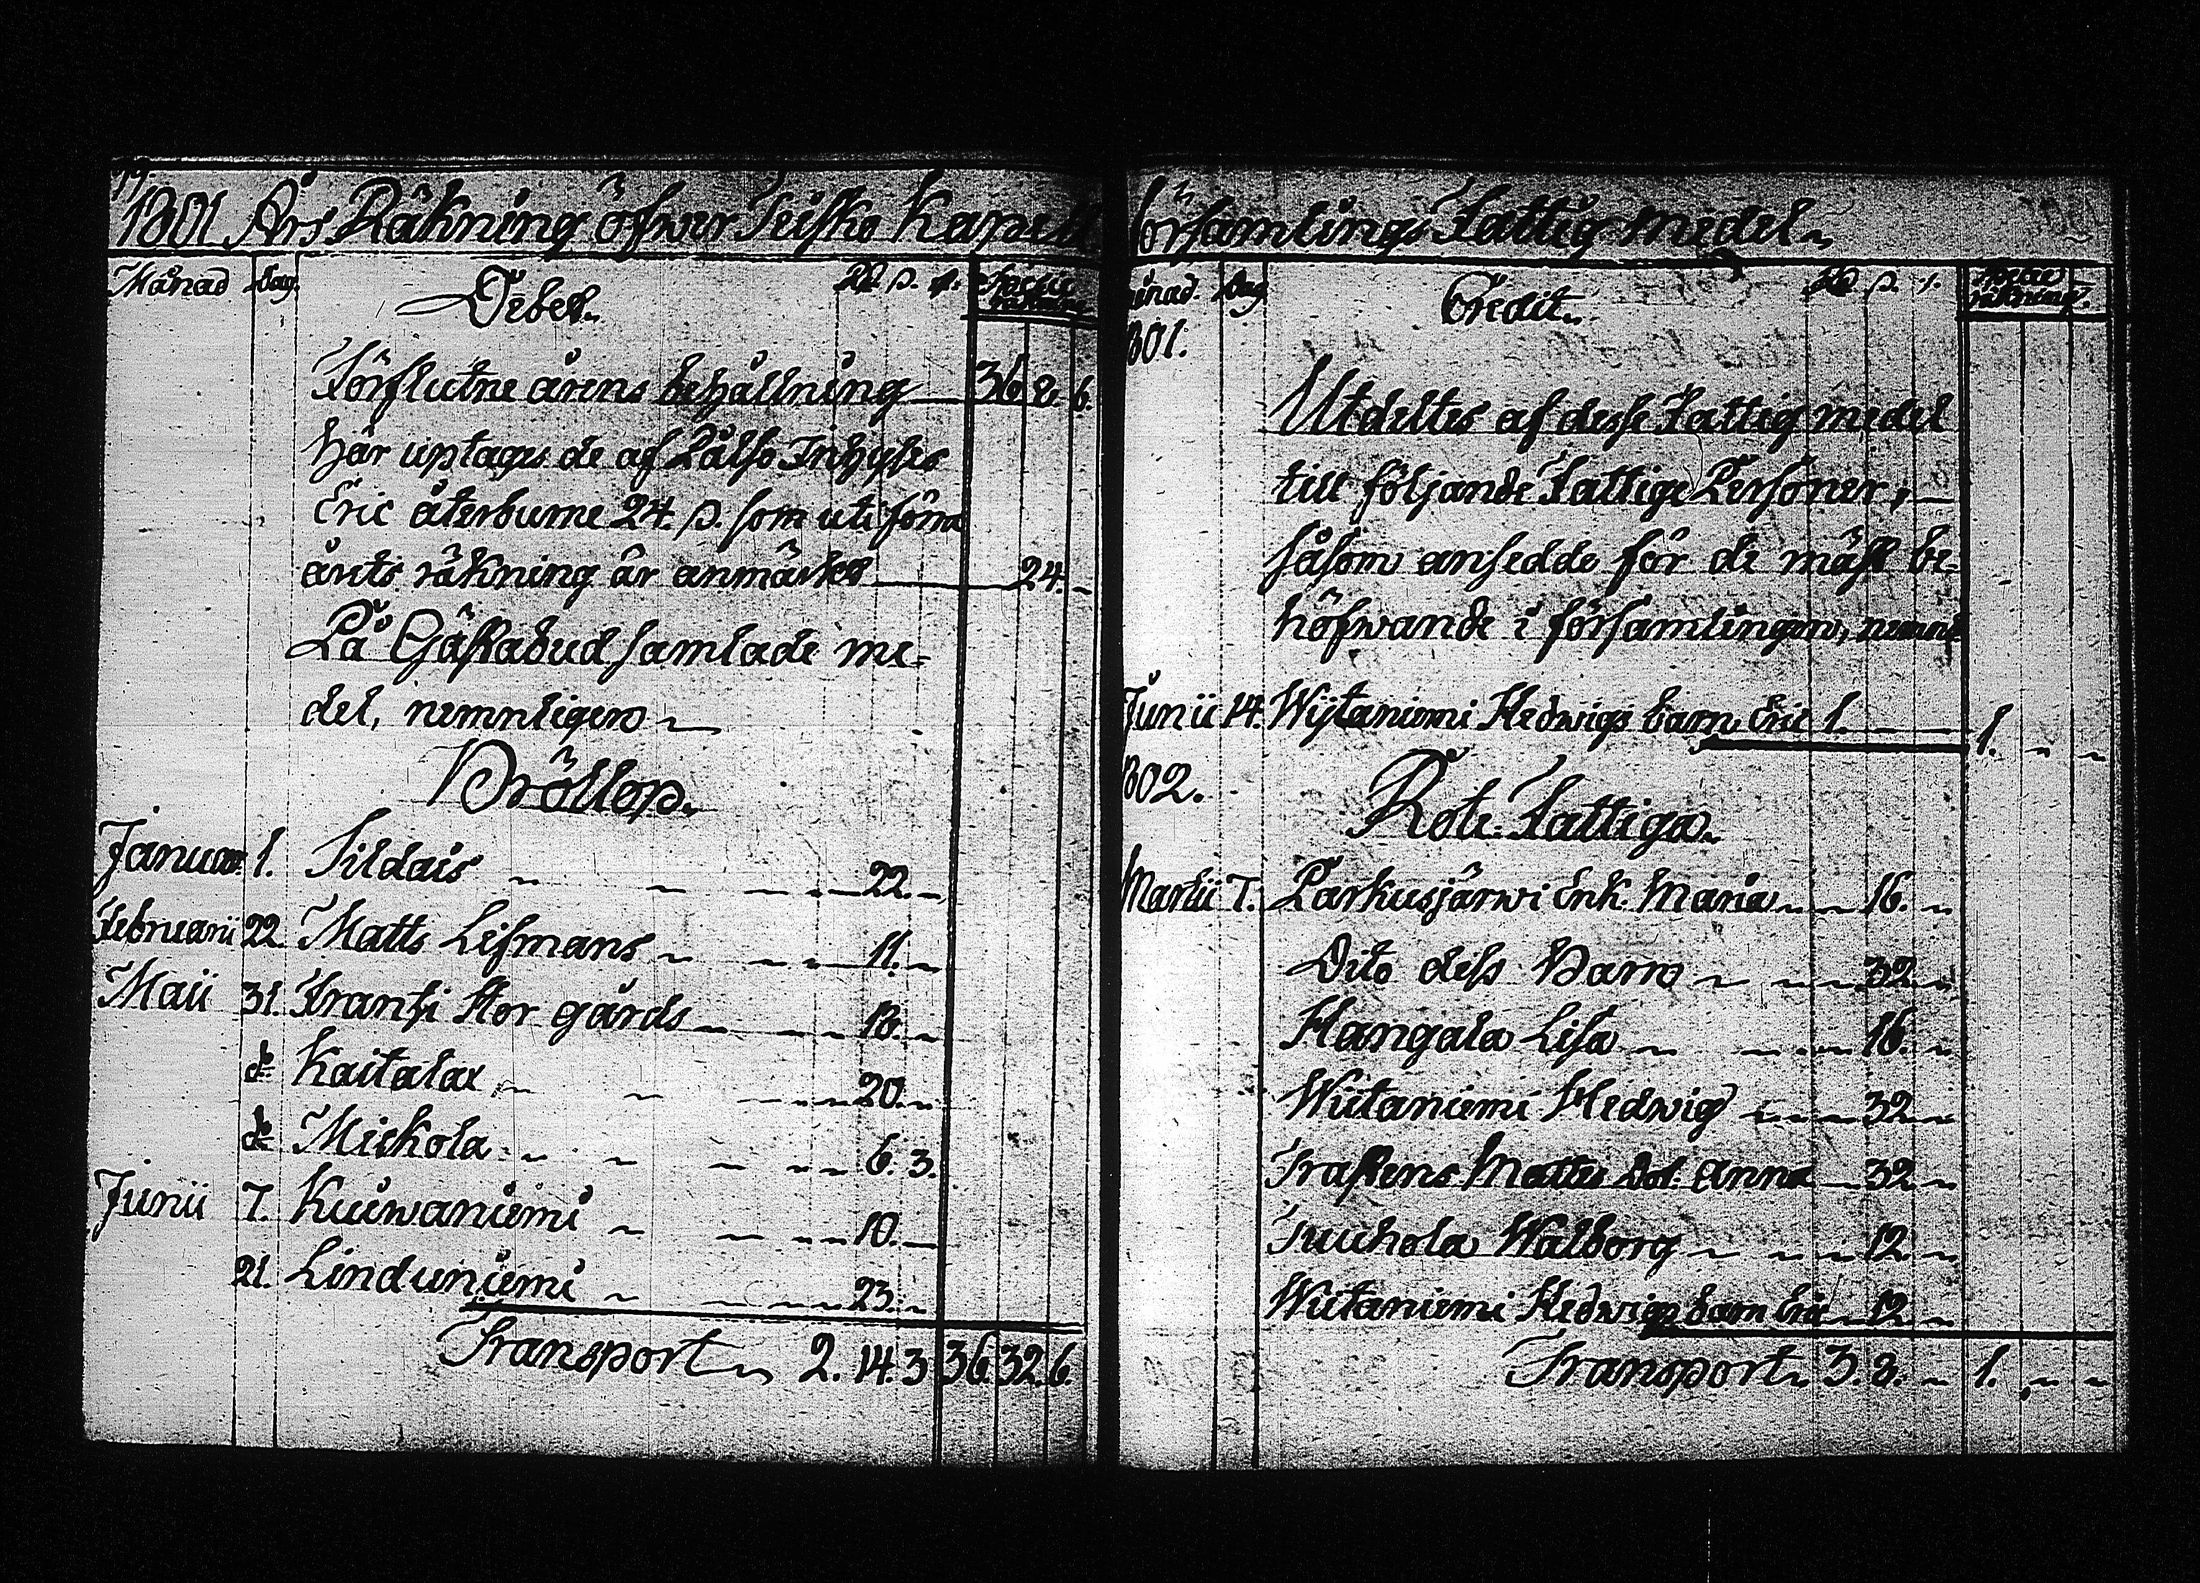 19.
1801 Års Räkning öfwer Teisko Kapell
Månad Dag Debet. Rd. s. r. Specie räkning
Förflutne årens behållning 36. 8. 6.
här uptages de af Pålso Inhyses
Eric återburne 24. s. som uti förra
årets räkning är anmärket 24. -
På Gästabud samlade me-
del, nemnligen
Bröllop.
Januar. 1. Sildais 22. -
Februarii 22. Matts Lismans 11. -
Maii 31. Frantsi Stor gårds 18. -
do Kaitalax 20. -
do Miekola 6. 3.
Junii 7. Kuiwaniemi 10. -
21. Linduniemi 23. -
Transport 2. 14. 3 36. 32. 6.
församlings Fattig medel
Månad. Dag Credit. Rd s. r. Specie räkning.
1801.
Utdeltes af desse Fattig medel
till följande Fattige Personer,
såsom ansedde för de mäst be-
höfwande i församlingen, nemnl.
Junii 14. Wijtaniemi Hedwigs barn Eric 1. - - 1. - -
1802.
Rote Fattiga
Martii 7. Parkusjärwi Enk. Maria 16. -
Dito dess Barn 32. -
Hangala Lisa 16. -
Wiitaniemi Hedwig 32. -
Frassens Matts Dot. Anna 32 -
Tuuhola Walborg 12. -
Wiitaniemi Hedwigs barn Eric 12 -
Transport 3. 8. - 1. - -